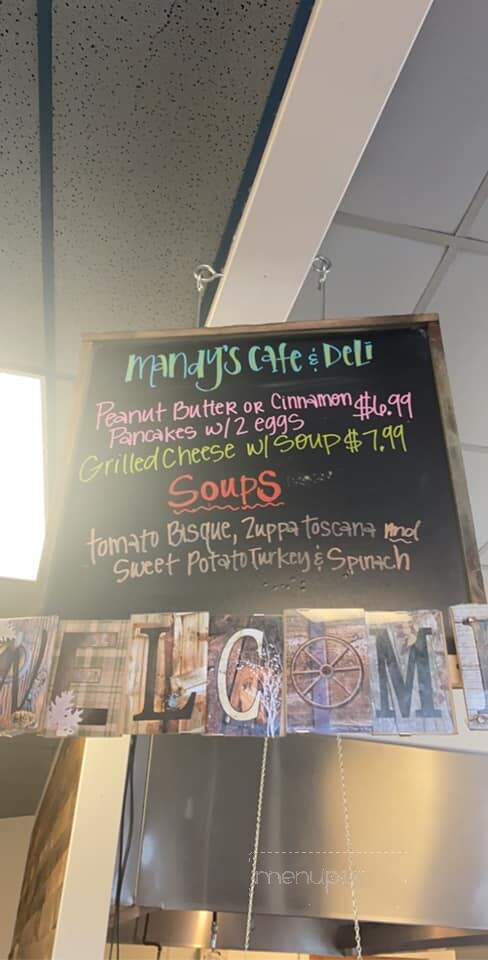 mandy's Cafe & Deli
Peanut Butter or Cinnamon $6.99
Pancakes w/2 eggs
Grilled Cheese w/ Soup $7.99
Soups
tomato Bisque, Zuppa Toscana and
Sweet Potato Turkey & Spinach
WELCOME
menupix